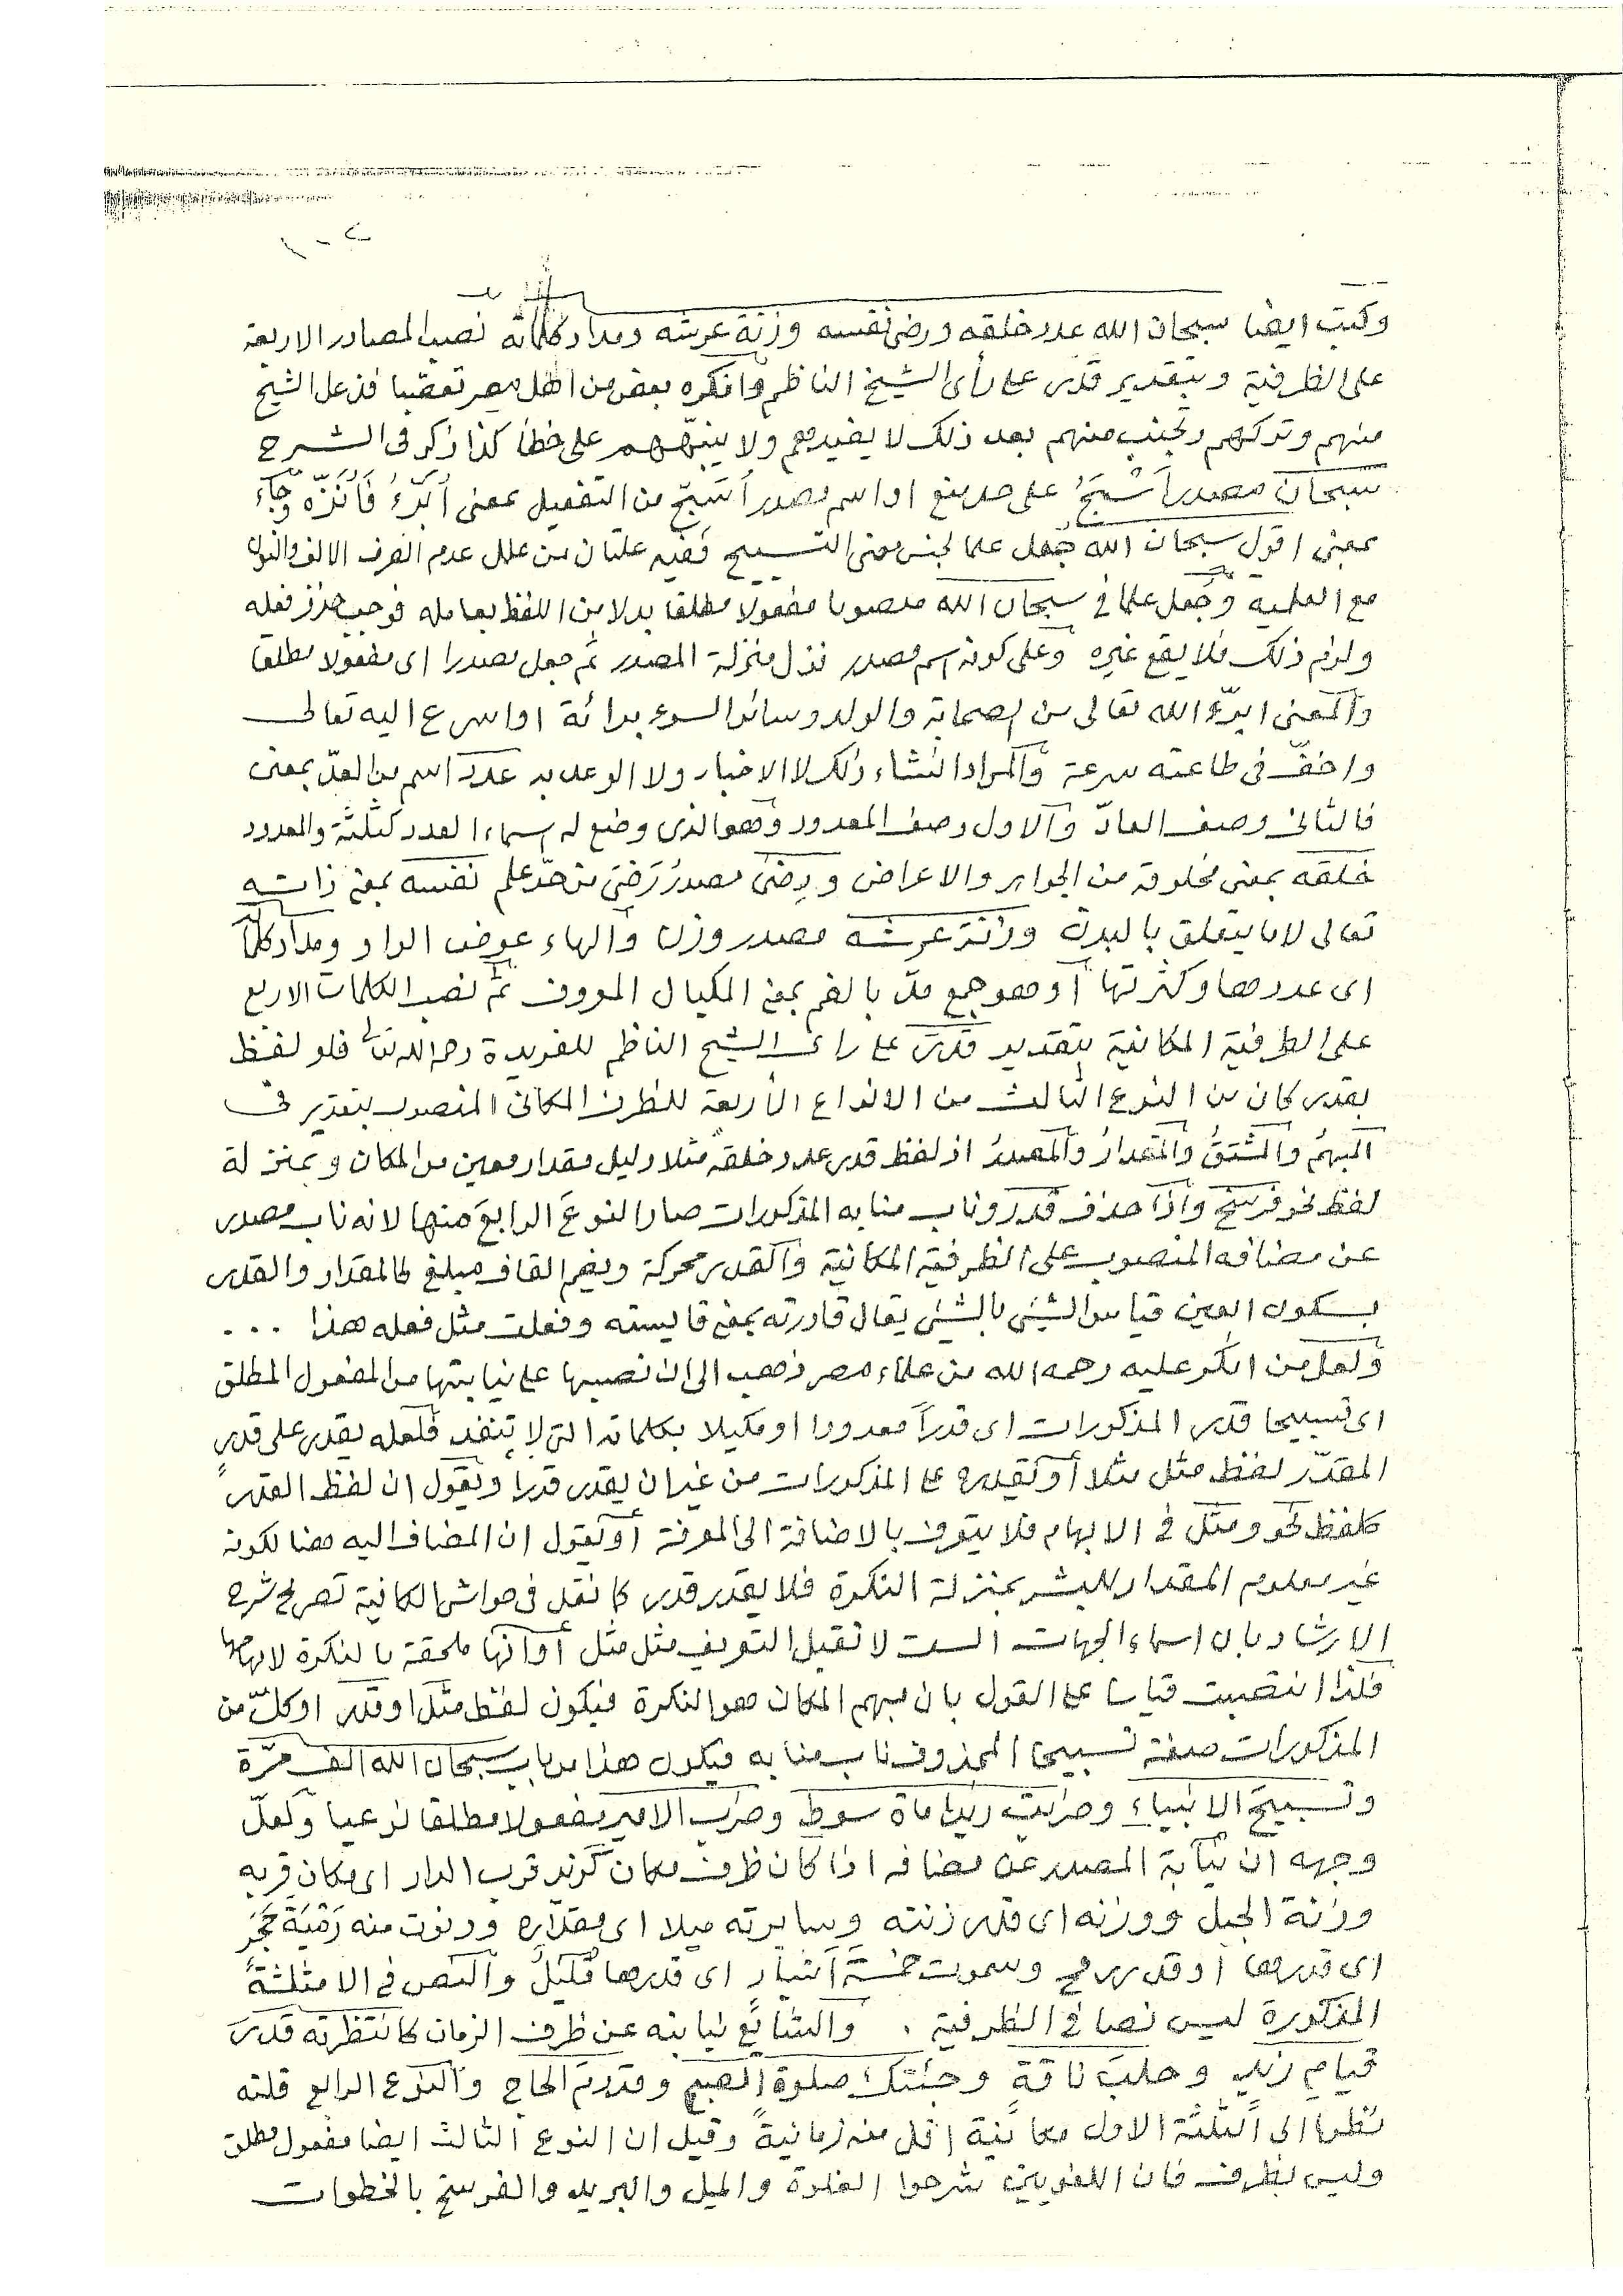 ١٠٢
وكتب ايضا سبحان الله عدد خلقه ورضى نفسه وزنة عرشه ومداد كلماته نصب المصادر الاربعة
على الظرفية وبتقدير قدر على رأى الشيخ الناظم وانكره بعض من اهل مصر تعقبا فزعل الشيخ
منهم وتركهم وتجنب منهم بعد ذلك لا يفيدهم ولا ينبّههم على خطأ كذا ذكر فى الشرح
سبحان مصدر أَسْبَحُ على حد منع او اسم مصدر أسبّح من التفعيل بمعنى أُبَرِّءُ فَأُنَزِّهُ وجَاءَ
بمعنى اقول سبحان الله جُعل علما لجنس معنى التسبيح ففيه علتان من علل عدم الصرف الالف والنون
مع العلمية وجُعل علما فى سبحان الله منصوبا مفعولا مطلقا بدلا من اللفظ بعامله فوجب حذف فعله
ولزم ذلك فلا يقع غيره وعلى كونه اسم مصدر نزل منزلة المصدر ثم جعل مصدرا اى مفعولا مطلقا
والمعنى ابرّء الله تعالى من الصحابة والولد وسائر السوء برائة او اسرع اليه تعالى
واخفّ فى طاعته سرعة والمراد انشاء ذلك لا الاخبار ولا الوعد به عدد اسم من العدّ بمعنى
فالثانى وصف العادّ والاول وصف المعدود وهو الذى وضع له اسماء العدد كثلثة والمعدود
خلقه بمعنى مخلوقه من الجواهر والاعراض ورضى مصدر رَضِىَ من حدّ علم نفسه بمعنى ذاته
تعالى لا ما يتعلق بالبدن وزنة عرشه مصدر وزن والهاء عوض الواو ومداد كلماته
اى عددها وكثرتها أو هو جمع مدّ بالضم بمعنى المكيال المعروف ثم نصب الكلمات الاربع
على الظرفية المكانية بتقدير قدر على رائ الشيخ الناظم للفريدة رحمه الله تعالى فلو لفظ
بقدر كان من النوع الثالث من الانواع الأربعة للظرف المكانى المنصوب بتقدير فى
المبهمُ والمشتقُّ والمقدارُ والمصدرُ اذ لفظ قدر عدد خلقه مثلا دليل مقدار معين من المكان وبمنزلة
لفظ نحو فرسخ واذا حذف قدر وناب منابه المذكورات صار النوعَ الرابعَ منها لانه ناب مصدر
عن مضافه المنصوب على الظرفية المكانية والقدر محركة وبضم القاف مبلغ كالمقدار والقدر
بسكون العين قياس الشيئ بالشيئ يقال قادرته بمعنى قايسته وفعلت مثل فعله هذا ...
ولعل من انكر عليه رحمه الله من علماء مصر ذهب الى ان نصبها على نيابتها من المفعول المطلق
اى تسبيحا قدر المذكورات اى قدراً معدودا او مكيلا بكلماته التى لا تنفد فلعله يقدر على قدر
المقدّر لفظ مثل مثلا أو تقديره على المذكورات من غير ان يقدر قدرا ويقول ان لفظ القدر
كلفظ نحو ومثل فى الابهام فلا يتعرف بالاضافة الى المعرفة أو يقول ان المضاف اليه هنا لكونه
غير معلوم المقدار للبشر بمنزلة النكرة فلا يقدر قدر كما نقل فى حواش الكافية تصريح شرح
الارشاد بان اسماء الجهات الست لا تقبل التعريف مثل مثل أو انها ملحقة بالنكرة لابهامها
فلذا انتصبت قياسا على القول بان مبهم المكان هو النكرة فيكون لفظ مثل او قدر او كلّ من
المذكورات صفة تسبيحا المحذوف ناب منابه فيكون هذا من باب سبحان الله الف مرّة
وتسبيحَ الانبياء وضربت زيدا مأة سوط وضرب الامير مفعولا مطلقا نوعيا ولعلّ
وجهه ان نيابة المصدر عن مضافه اذا كان ظرف مكان كزيد قرب الدار اى مكان قربه
وزنة الجبل ووزنه اى قدر زنته وسايرته ميلا اى مقداره ودنوت منه رَمْيَةَ حَجَرٍ
اى قدرها أو قدر رمح وسموت خمسةَ أشبار اى قدرها قليلٌ والنص فى الامثلثةً
المذكورة ليس نصا فى الظرفية . والشائع نيابته عن ظرف الزمان كانتظرته قدرَ
قيام زيد وحلبَ ناقة وجئتك صلوة الصبح ومقدم الحاج والنوع الرابع قلته
نظرا الى الثلثة الاول مكانية اقل منه زمانيةً وقيل ان النوع الثالث ايضا مفعول مطلق
وليس بظرف فان اللغويين شرحوا الغلوة والميل والبريد والفرسخ بالخطوات